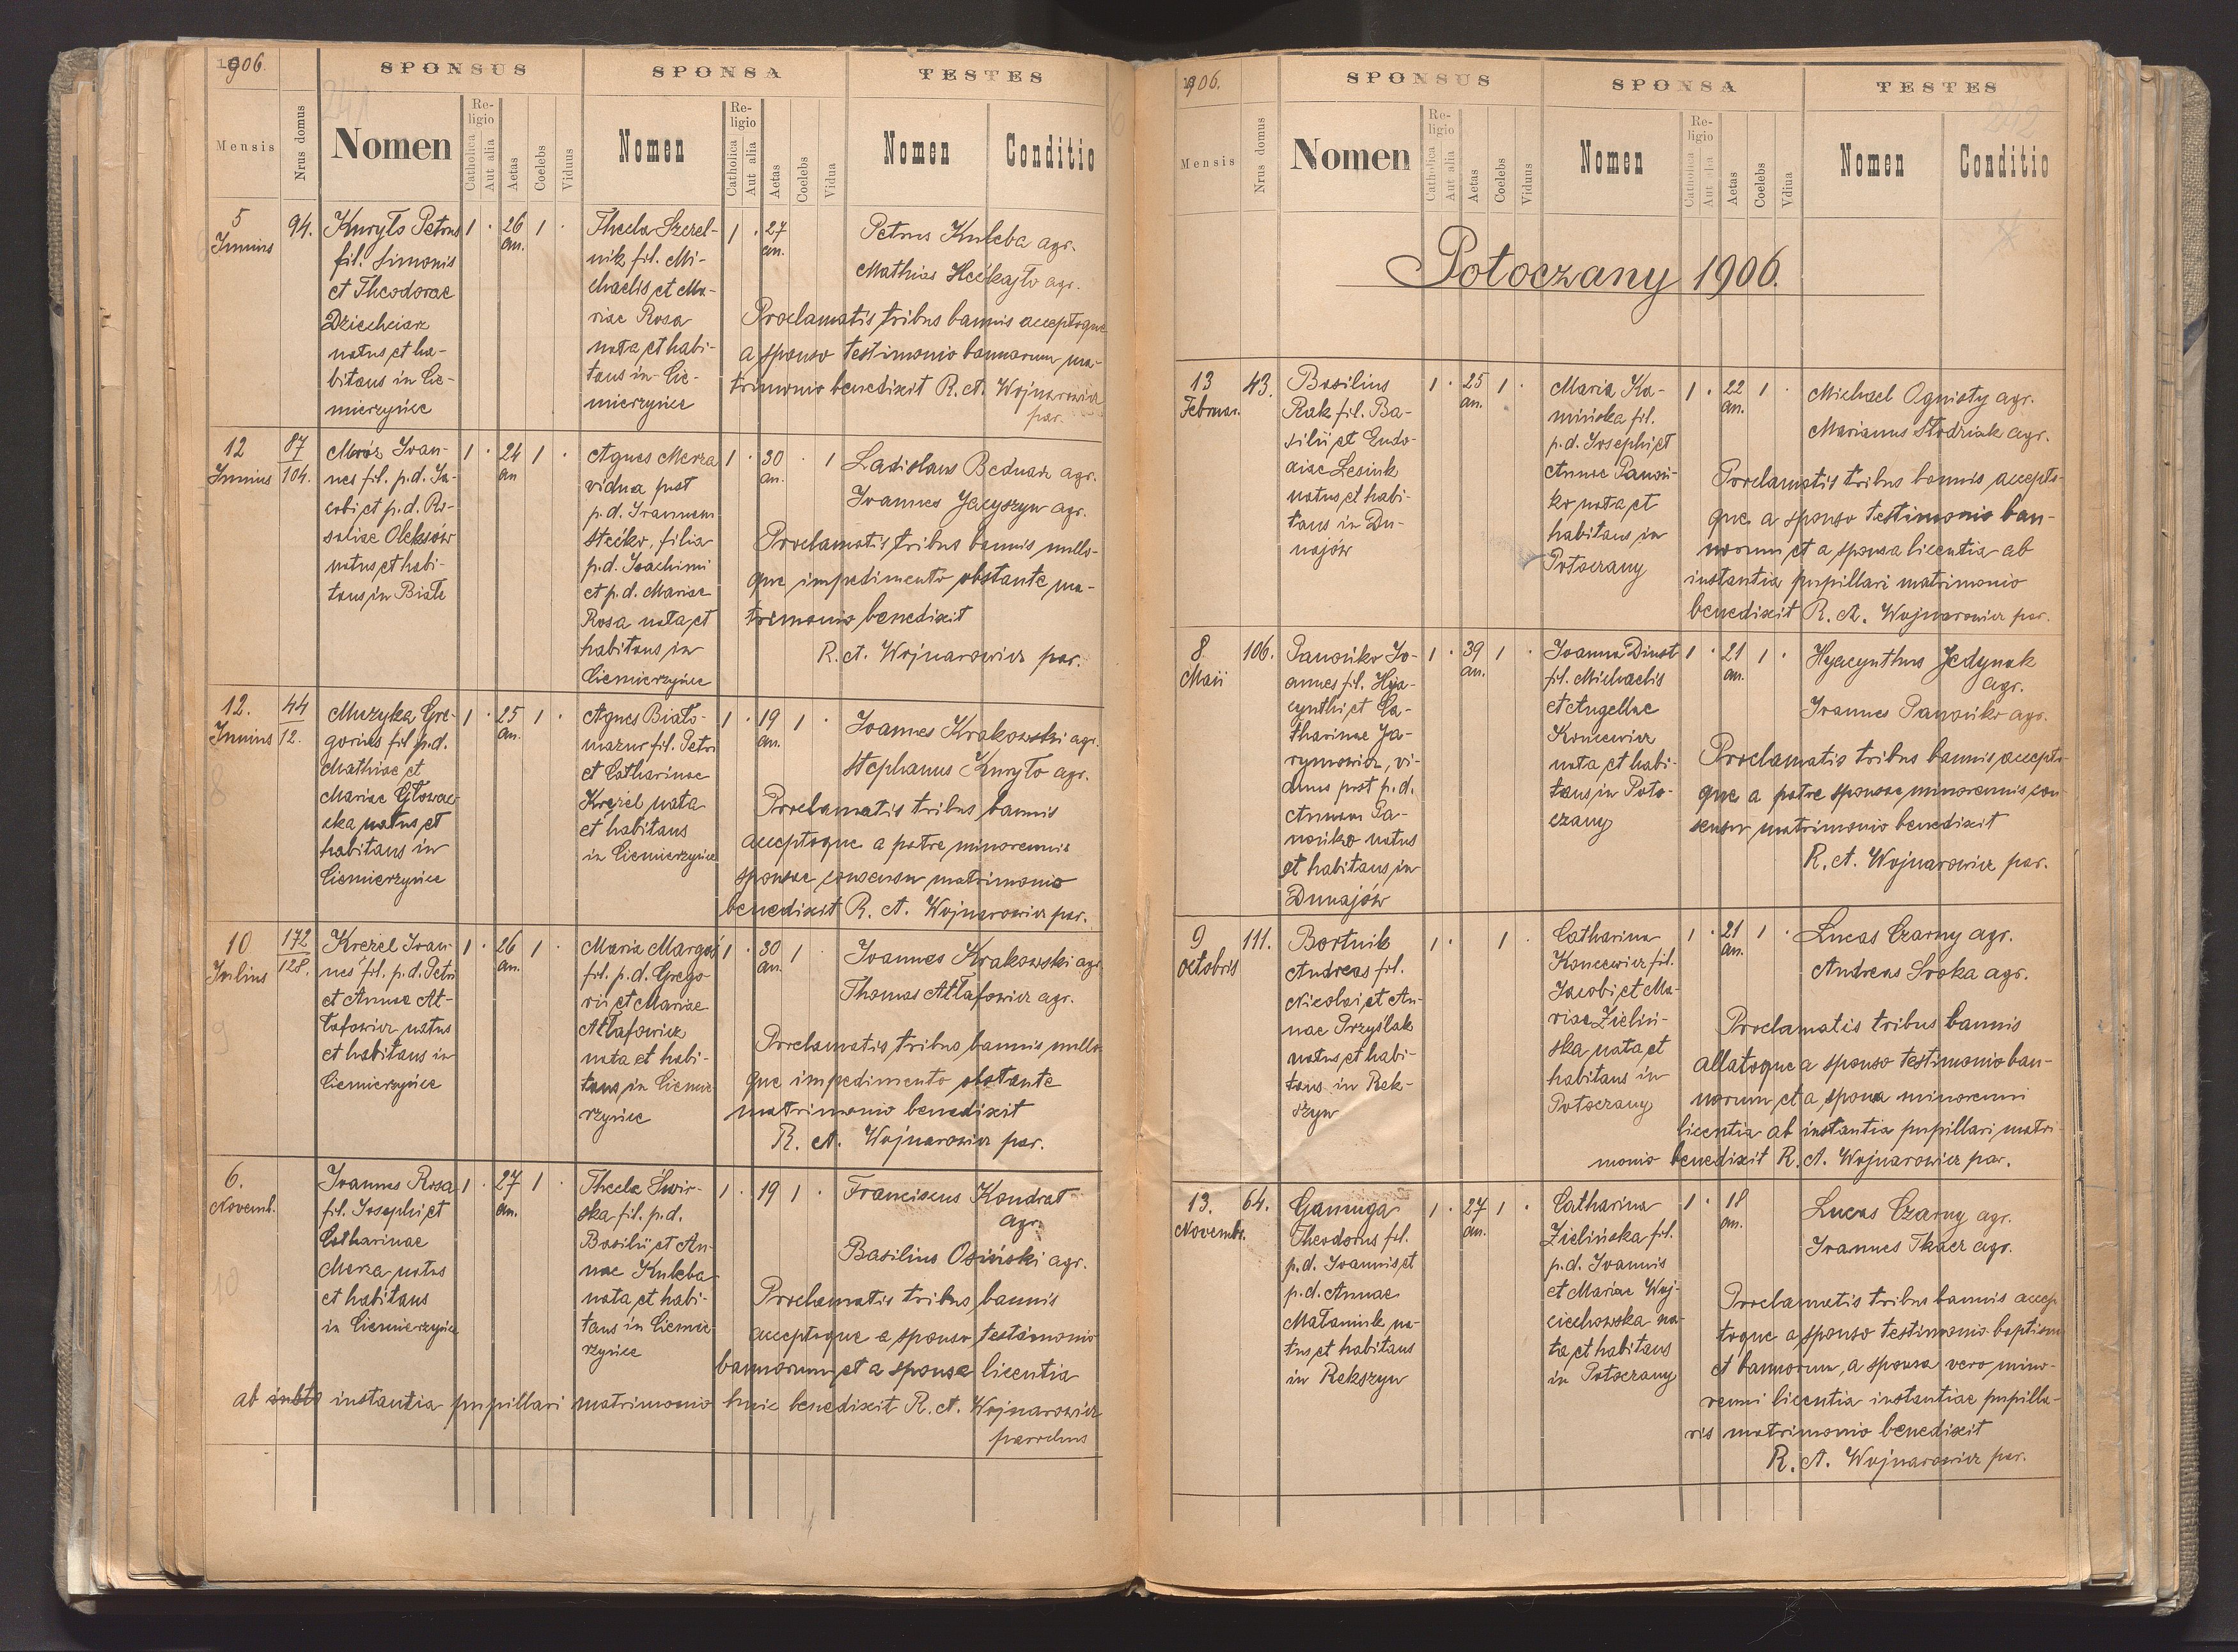 1906.
SPONSUS SPONSA TESTES
Mensis Nrus domus Nomen Religio Catholica Aut alia Aetas Coelebs Viduus Nomen Religio Catholica Aut alia Aetas Coelebs Vidua Nomen Conditio
5
Junius
94.
Kuryło Petrus
fil. Simonis
et Theodorae
Dziechciarz
natus et ha-
bitans in Cie-
mierzyńce
1 · 26 1 ·
an.
Thecla Szezel-
nik fil. Mi-
chaelis et Ma-
riae Rosa
nata et habi-
tans in Cie-
mierzyńce
1 · 27
an.
Petrus Kuleba agr.
Mathias Hećkajło agr.
Proclamatis tribus bannis acceptoque
a sponso testimonio bannorum ma-
trimonio benedixit R. A. Wojnarowicz
par.
12
Junius
87
104.
Mróz Joan-
nes fil. p.d. Ja-
cobi et p.d. Ro-
saliae Oleksów
natus et habi-
tans in Białe
1 · 24 1 ·
an
Agnes Merza
vidua post
p.d. Joannem
Stećko, filia
p.d. Joachimi
et p.d. Mariae
Rosa nata et
habitans in
Ciemierzyńce
1 · 30 · 1
an.
Ladislaus Bednarz agr.
Joannes Jacyszyn agr.
Proclamatis tribus bannis nullo-
que impedimento obstante ma-
trimonio benedixit
R. A. Wojnarowicz par.
12.
Junius
44
12.
Muzyka Gre-
gorius fil p.d.
Mathiae et
Mariae Głowac-
cka natus et
habitans in
Ciemierzyńce
1 · 25 1 ·
an.
Agnes Biało-
mazur fil. Petri
et Catharinae
Krężel nata
et habitans
in Ciemierzyńce
1 · 19 1 ·
an.
Joannes Krakowski agr.
Stephanus Kuryło agr.
Proclamatis tribus bannis
acceptoque a patre minorennis
sponsae consensu matrimonio
benedixit R. A. Wojnarowicz par.
10
Julius
172
128.
Krężel Joan-
nes fil. p.d. Petri
et Annae At-
łafowicz natus
et habitans in
Ciemierzyńce
1 · 26 1 ·
an.
Maria Margaś
fil. p.d. Grego-
rii et Mariae
Atłafowicz
nata et habi-
tans in Ciemie-
rzyńce
1 · 30 1 ·
an.
Joannes Krakowski agr.
Thomas Atłafowicz agr.
Proclamatis tribus bannis nullo-
que impedimento obstante
matrimonio benedixit
R. A. Wojnarowicz par.
6.
Novemb.
Joannes Rosa
fil. Josephi et
Catharinae
Merza natus
et habitans
in Ciemierzyńce
1 · 27 1 ·
an.
Thecla Świr-
ska fil. p.d.
Basilii et An-
nae Kuleba
nata et habi-
tans in Ciemie-
rzyńce
1 · 19 1 ·
Franciscus Kondrat
agr.
Basilius Osiński agr.
Proclamatis tribus bannis
acceptoque a sponso testimonio
bannorum et a sponsa licentia
ab instantia pupillari matrimonio huic benedixit R. A. Wojnarowicz
parochus
1906.
SPONSUS SPONSA TESTES
Mensis Nrus domus Nomen Religio Catholica Aut alia Aetas Coelebs Viduus Nomen Religio Catholica Aut alia Aetas Coelebs Vdiua Nomen Conditio
Potoczany 1906.
13
Februar.
43.
Basilius
Rak fil. Ba-
silii et Eudo-
xiae Lesiuk
natus et habi-
tans in Du-
najów
1 · 25 1 ·
an.
Maria Ka-
mińska fil.
p.d. Josephi et
Annae Panoń-
ko nata et
habitans in
Potoczany
1 · 22 1 ·
an.
Michael Ognisty agr.
Marianus Słodziak agr.
Proclamatis tribus bannis accepto-
que a sponso testimonio ban-
norum et a sponsa licentia ab
instantia pupillari matrimonio
benedixit R. A. Wojnarowicz par.
8
Maii
106.
Panońko Jo-
annes fil. Hya-
cynthi et Ca-
tharinae Ja-
rymowicz, vi-
duus post p.d.
Annam Pa-
nońko natus
et habitans in
Dunajów
1 · 39 1 ·
an.
Joanna Dinst
fil. Michaelis
et Angellae
Koncewicz
nata et habi-
tans in Poto-
czany
1 · 21 1 ·
an.
Hyacynthus Jedynak
agr.
Joannes Panońko agr.
Proclamatis tribus bannis accepto-
que a patre sponsae minorennis con-
sensu matrimonio benedixit
R. A. Wojnarowicz par.
9
Octobris
111.
Bortnik
Andreas fil.
Nicolai et An-
nae Przyślak
natus et habi-
tans in Rek-
szyn
1 · 1 ·
Catharina
Koncewicz fil.
Jacobi et Ma-
riae Zieliń-
ska nata et
habitans in
Potoczany
1 · 21 1 ·
an.
Lucas Czarny agr.
Andreas Sroka agr.
Proclamatis tribus bannis
allatoque a sponso testimonio ban-
norum et a sponsa minorenni
licentia ab instantia pupillari matri-
monio benedixit R. A. Wojnarowicz par.
13.
Novembr.
64.
Gamuga
Theodorus fil.
p.d. Joannis et
p.d. Annae
Matamiuk na-
tus et habitans
in Rekszyn
1 · 27 1 ·
an.
Catharina
Zielińska fil.
p.d. Joannis
et Mariae Woj-
ciechowska na-
ta et habitans
in Potoczany
1 · 18
an.
Lucas Czarny agr.
Joannes Tkacz agr.
Proclamatis tribus bannis accep-
toque a sponso testimonio baptismi
et bannorum, a sponsa vero mino-
renni licentia instantiae pupilla-
ris matrimonio benedixit
R. A. Wojnarowicz par.